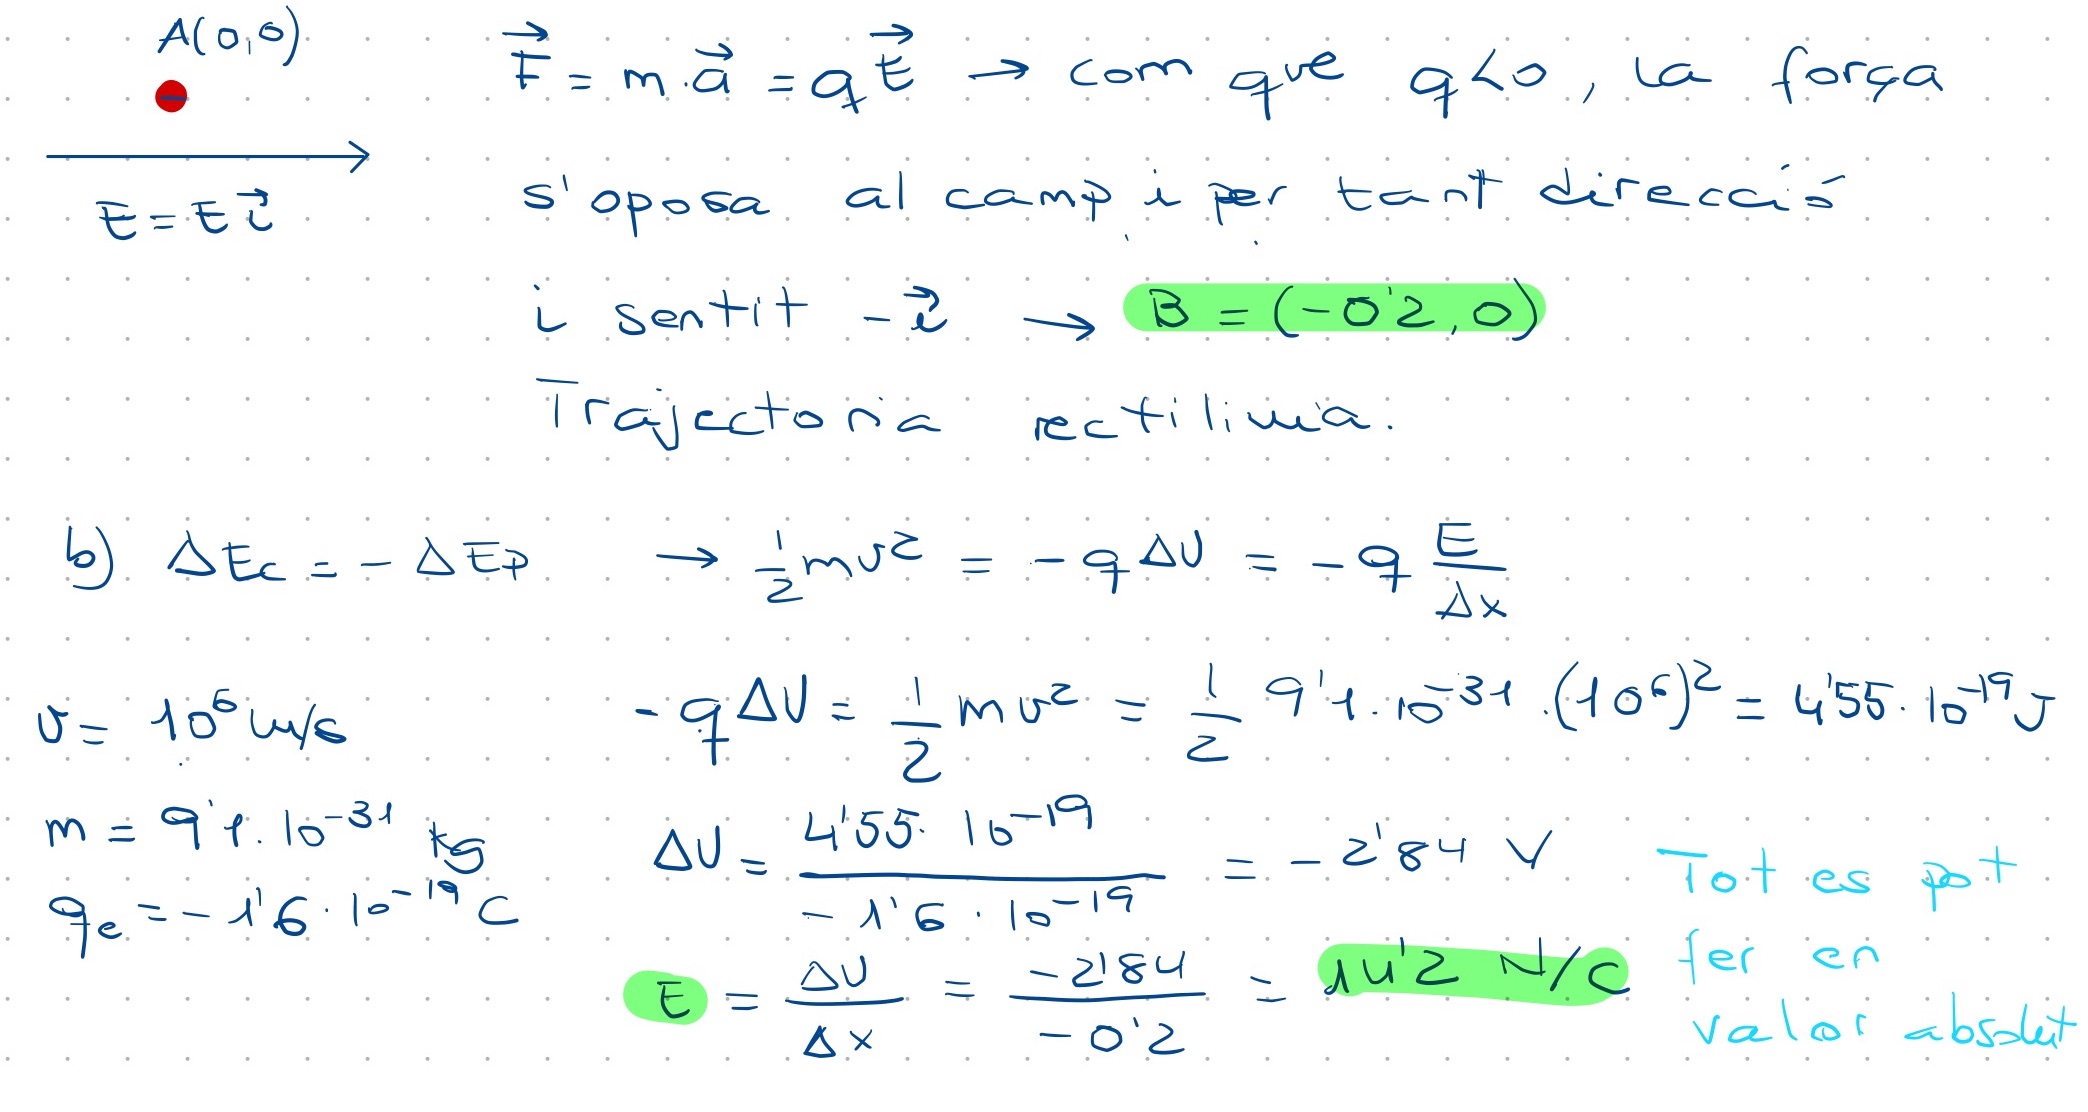 A(0,0)
E = E i⃗
F⃗ = m·a⃗ = q E⃗ → com que q<0, la força
s'oposa al camp i per tant direcció
i sentit -i⃗ → B = (-0'2, 0)
Trajectoria rectilinia.
b) ΔEc = - ΔEp → 1/2 mv² = - q ΔU = - q E/Δx
v = 10⁶ m/s
- q ΔU = 1/2 m v² = 1/2 9'1·10⁻³¹ ·(10⁶)² = 4'55·10⁻¹⁹ J
m = 9'1·10⁻³¹ kg
ΔU = 4'55·10⁻¹⁹ / -1'6·10⁻¹⁹ = - 2'84 V
qe = - 1'6·10⁻¹⁹ C
E = ΔU/Δx = -2'84/-0'2 = 14'2 N/C
Tot es pot
fer en
valor absolut